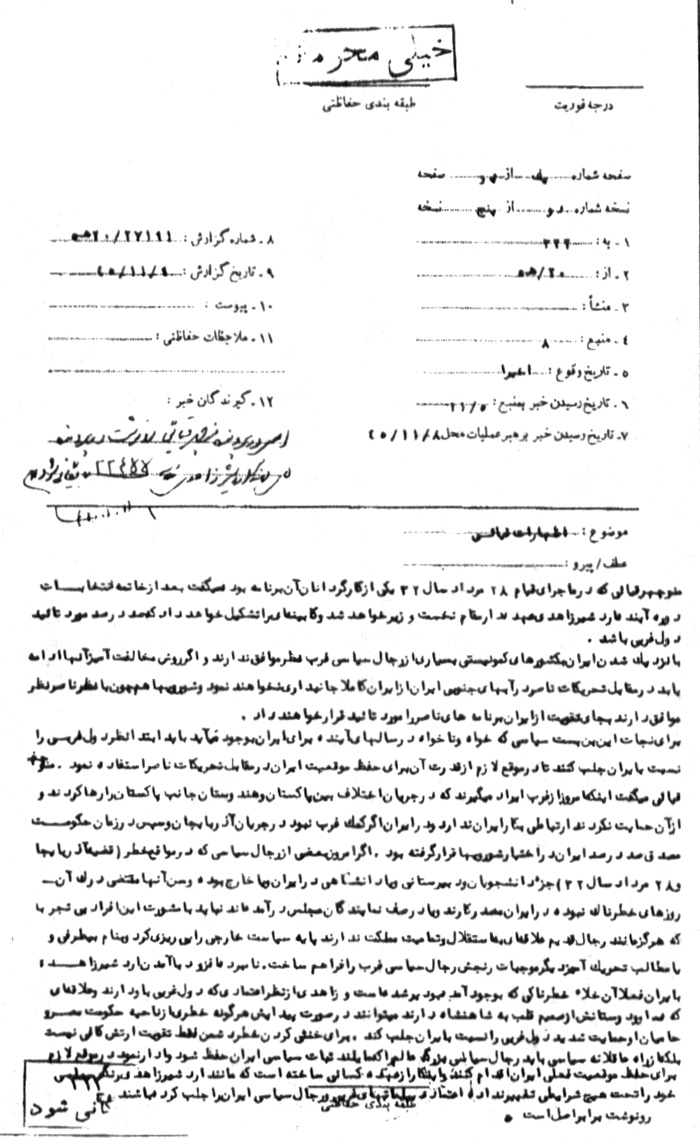 خیلی محرمانه
طبقه بندی حفاظتی
درجه فوریت
صفحه شماره یک از دو صفحه
نسخه شماره دو از پنج نسخه
۱ - به : ۳۲۲
۲ - از : ۲۰/ه۵
۳ - منشأ :
۴ - منبع : ۸
۵ - تاریخ وقوع : اخیرا
۶ - تاریخ رسیدن خبر بمنبع : ۲۱/۵
۷ - تاریخ رسیدن خبر برهبر عملیات محل ۴۵/۱۱/۸
۸ - شماره گزارش : ۲۷۱۹۱/۲۰ه۵
۹ - تاریخ گزارش : ۴۵/۱۱/۹
۱۰ - پیوست :
۱۱ - ملاحظات حفاظتی :
۱۲ - گیرندگان خبر :
موضوع : اظهارات فیاتی
عطف / پیرو :
منوچهر فیاتی که در ماجرای قیام ۲۸ مرداد سال ۳۲ یکی از کارگردانان آن برنامه بود میگفت بعد از خاتمه انتخابات
دوره آینده اردشیر زاهدی عهده دار مقام نخست وزیر خواهد شد و کابینه‌ای را تشکیل خواهد داد که صد در صد مورد تائید
دول غربی باشد .
با نزدیک شدن ایران بکشورهای کمونیستی بسیاری از رجال سیاسی غرب نظر موافق ندارند و اگر روش مخالفت آمیز آنها ادامه
یابد در مقابل تحریکات ناصر درآبهای جنوبی ایران از ایران کاملا جانبداری نخواهند نمود و شورویها هم چون با نظر ناصر نظر
موافق دارند بجای تقویت از ایران برنامه های ناصر را مورد تائید قرار خواهند داد .
برای نجات این بن بست سیاسی که خواه و ناخواه در سالهای آینده برای ایران بوجود میآید باید ابتدا نظر دول غربی را
نسبت بایران جلب کنند تا در موقع لازم از قدرت آن برای حفظ موقعیت ایران در مقابل تحریکات ناصر استفاده نمود . منوچهر
فیاتی میگفت اینکه امروز از غرب ایراد میگیرند که در جریان اختلاف بین پاکستان و هندوستان جانب پاکستان را رها کردند و
از آن حمایت نکردند ارتباطی بکار ایران ندارد و در ایران اگر کمک غرب نبود در جریان آذربایجان و سپس در زمان حکومت
مصدق صد در صد ایران در اختیار شورویها قرار گرفته بود . اگر امروز بعضی از رجال سیاسی که در مواقع خطر ( قضیه آذربایجان
و ۲۸ مرداد سال ۳۲ ) جزء دانشجویان و دبیرستانی و یا دانشگاهی در ایران و یا خارج بوده و سن آنها مقتضی درک آن
روزهای خطرناک نبوده در ایران مصدر کارند و یا در صف نمایندگان مجلس درآمده‌اند نباید با مشورت این افراد بی تجربه
که هرگز مانند رجال قدیم علاقه‌ای به استقلال و تمامیت مملکت ندارند پایه سیاست خارجی را پی ریزی کرد و بنام بیطرفی و
یا مطالب تحریک آمیز دیگر موجبات رنجش رجال سیاسی غرب را فراهم ساخت . نامبرده افزود با آمدن اردشیر زاهدی
بایران فعلا آن خلاء خطرناکی که بوجود آمده بود پر شده است و زاهدی از نظر اعتمادی که دول غربی باو دارند و علاقه‌ای
که او و دوستانش از صمیم قلب به شاهنشاه دارند میتوانند در صورت پیدایش هرگونه خطری از ناحیه حکومت مصر و
حامیان او حمایت شدید دول غربی را نسبت بایران جلب کند . برای خنثی کردن خطر دشمن فقط تقویت ارتش کافی نیست
بلکه از راه عاقلانه سیاسی باید رجال سیاسی بزرگ عالم را که مایلند ثبات سیاسی ایران حفظ شود وادار نمود در موقع لازم
برای حفظ موقعیت فعلی ایران اقدام کنند و اینکار از عهده کسانی ساخته است که مانند اردشیر زاهدی رنگ سیاسی
خود را تحت هیچ شرایطی تغییر نداده اعتماد دیپلماتهای غربی و رجال سیاسی ایران را جلب کرده باشند
رونوشت برابر اصل است .
طبقه بندی حفاظتی
۳۲۲
بایگانی شود